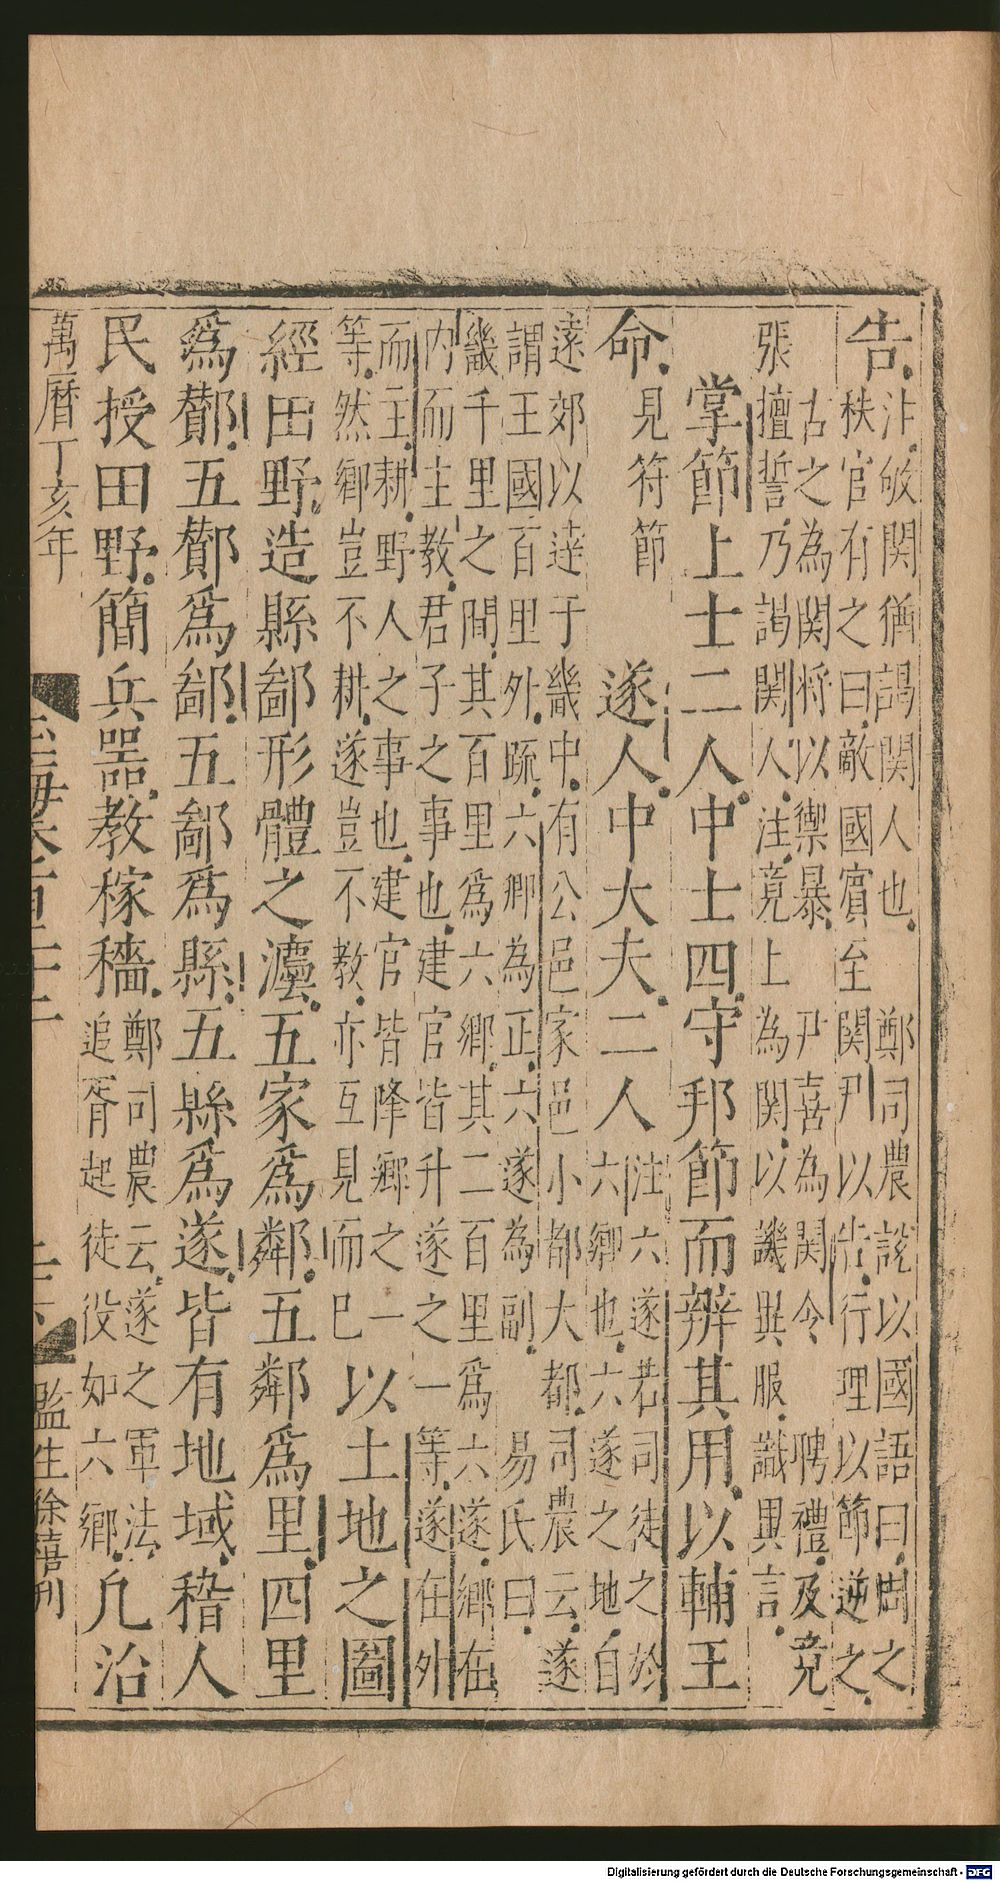 告
注敂関猶謁関人也鄭司農說以國語曰周之
秩官有之曰敵國賓至関尹以告行理以節逆之
古之為関將以禦暴尹喜為関令聘禮及竟
張擅誓乃謁関人注竟上為関以譏異服識異言
掌節上士二人中士四守邦節而辨其用以輔王
命
見符節
遂人中大夫二人
注六遂若司徒之於
六鄉也六遂之地自
遠郊以達于畿中有公邑家邑小都大都司農云遂
謂王國百里外疏六鄉為正六遂為副易氏曰
畿千里之間其百里爲六鄉其二百里爲六遂鄉在
內而主教君子之事也建官皆升遂之一等遂在外
而主耕野人之事也建官皆降鄉之一
等然鄉豈不耕遂豈不教亦互見而已
以土地之圖
經田野造縣鄙形體之灋五家爲鄰五鄰爲里四里
爲酇五酇爲鄙五鄙爲縣五縣爲遂皆有地域稽人
民授田野簡兵器教稼穡
鄭司農云遂之軍法
追胥起徒役如六鄉
凡治
萬曆丁亥年
監生徐禧刊
Digitalisierung gefördert durch die Deutsche Forschungsgemeinschaft - DFG